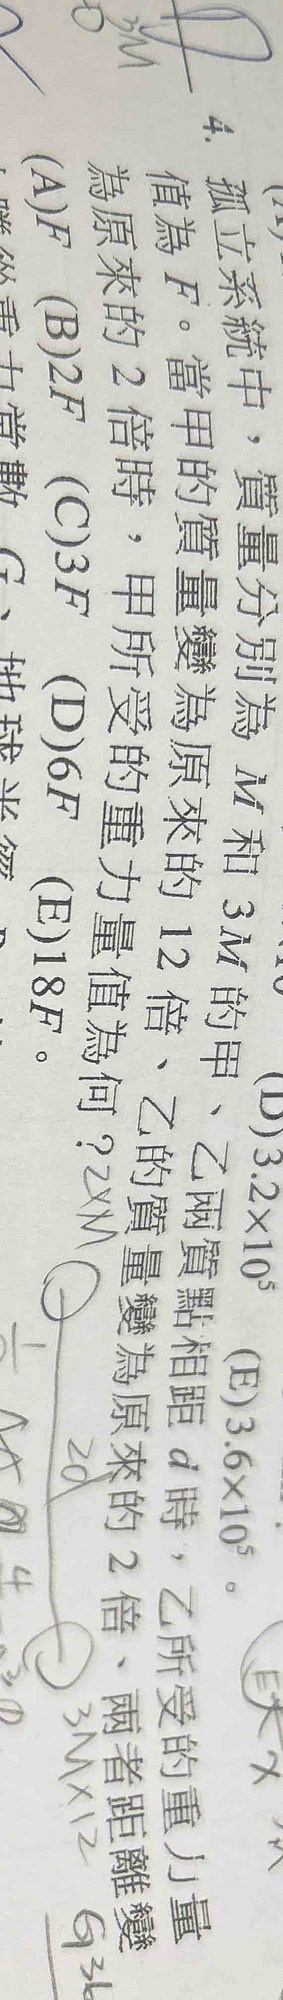 (D)3.2×10⁵ (E)3.6×10⁵。
4. 孤立系統中，質量分別為 M 和 3M 的甲、乙兩質點相距 d 時，乙所受的重力量
值為 F。當甲的質量變為原來的 12 倍、乙的質量變為原來的 2 倍、兩者距離變
為原來的 2 倍時，甲所受的重力量值為何？
(A)F (B)2F (C)3F (D)6F (E)18F。
3M
2×M
2d
3M×12